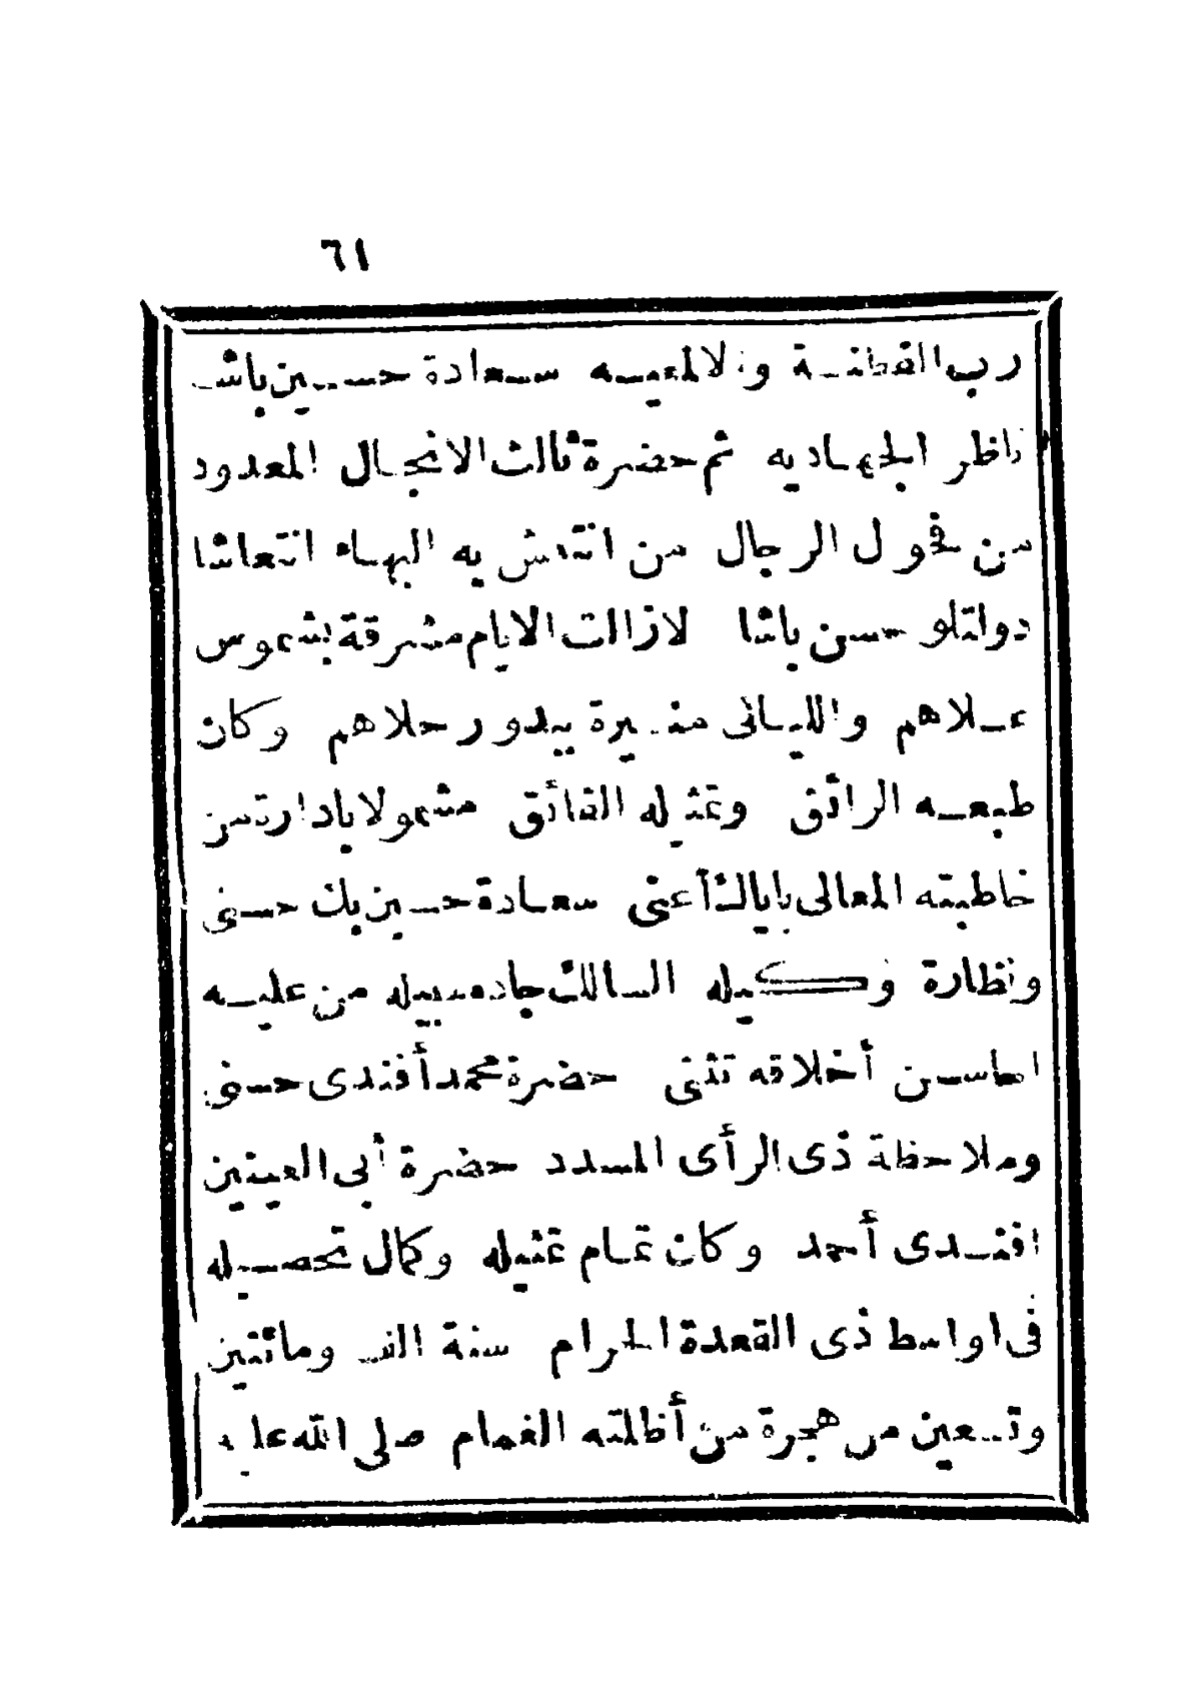 ٦١
رب الفطنة والالمعيه سعادة حسين باشا
ناظر الجهاديه ثم حضرة ثالث الانجال المعدود
من فحول الرجال من انتعش به البهاء انتعاشا
دولتلو حسن باشا لازالت الايام مشرقة بشموس
علاهم والليالى منيرة ببدور حلاهم وكان
طبعه الرائق وتمثيله الفائق مشمولا بادارة من
خاطبته المعالى باياك أعنى سعادة حسين بك حسنى
ونظارة وكيله السالك جادة سبيله من عليه
احاسن أخلاقه تثنى حضرة محمد أفندى حسنى
وملاحظة ذى الرأى المسدد حضرة أبى العينين
افندى أحمد وكان تمام تمثيله وكمال تحصيله
فى اواسط ذى القعدة الحرام سنة الف ومائتين
وتسعين من هجرة من أظلته الغمام صلى الله عليه